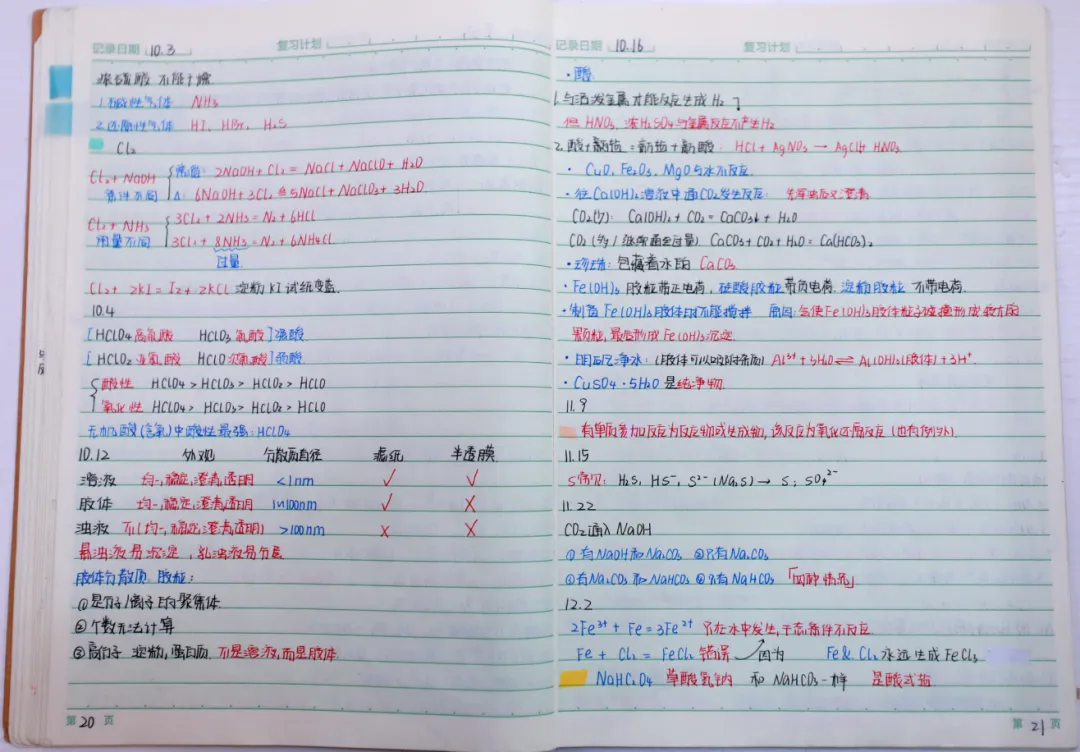 记录日期 10.3 复习计划
浓硫酸 不能干燥
1.碱性气体 NH₃
2.还原性气体 HI、HBr、H₂S
Cl₂
Cl₂+NaOH 常温: 2NaOH+Cl₂=NaCl+NaClO+H₂O
条件不同 Δ: 6NaOH+3Cl₂≙5NaCl+NaClO₃+3H₂O
Cl₂+NH₃ 3Cl₂+2NH₃=N₂+6HCl
用量不同 3Cl₂+8NH₃=N₂+6NH₄Cl
过量
Cl₂+2KI=I₂+2KCl 淀粉KI试纸变蓝
10.4
[HClO₄高氯酸 HClO₃氯酸]强酸
[HClO₂亚氯酸 HClO次氯酸]弱酸
酸性 HClO₄>HClO₃>HClO₂>HClO
氧化性 HClO₄>HClO₃>HClO₂>HClO
无机酸(含氧)中酸性最强:HClO₄
10.12 外观 分散质直径 滤纸 半透膜
溶液 均一,稳定,澄清,透明 <1nm √ √
胶体 均一,稳定,澄清,透明 1~100nm √ X
浊液 不(均一,稳定,澄清,透明) >100nm X X
悬浊液易沉淀,乳浊液易分层
胶体分散质 胶粒:
①是分子/离子的聚集体
②个数无法计算
③高分子 淀粉,蛋白质 不是溶液,而是胶体
第20页
记录日期 10.16 复习计划
·酸:
1.与活泼金属才能反应生成H₂
但HNO₃、浓H₂SO₄与金属反应不产生H₂
2.酸+新盐=新盐+新酸: HCl+AgNO₃→AgCl↓+HNO₃
· CuO、Fe₂O₃、MgO与水不反应
·往Ca(OH)₂溶液中通CO₂发生反应: 先浑浊后又澄清
CO₂(少): Ca(OH)₂+CO₂=CaCO₃↓+H₂O
CO₂(多/继续通至过量) CaCO₃+CO₂+H₂O=Ca(HCO₃)₂
·珍珠:包藏着水的CaCO₃
·Fe(OH)₃胶粒带正电荷,硅酸胶粒带负电荷,淀粉胶粒不带电荷
·制备Fe(OH)₃胶体时不能搅拌 原因:会使Fe(OH)₃胶体粒子碰撞形成较大的
颗粒,最后形成Fe(OH)₃沉淀
·明矾净水:(胶体可以吸附杂质) Al³⁺+3H₂O⇌Al(OH)₃(胶体)+3H⁺
·CuSO₄·5H₂O是纯净物
11.9
有单质参加反应为反应物或生成物,该反应为氧化还原反应(也有例外)
11.15
S常见: H₂S、HS⁻、S²⁻(Na₂S)→S;SO₄²⁻
11.22
CO₂通入NaOH
①有NaOH和Na₂CO₃ ②只有Na₂CO₃
③有Na₂CO₃和NaHCO₃ ④只有NaHCO₃「四种情况」
12.2
2Fe³⁺+Fe=3Fe²⁺ 只在水中发生,干态条件不反应
Fe+Cl₂=FeCl₂ 错误 因为 Fe&Cl₂永远生成FeCl₃
NaHC₂O₄ 草酸氢钠 和NaHCO₃一样 是酸式盐
第21页